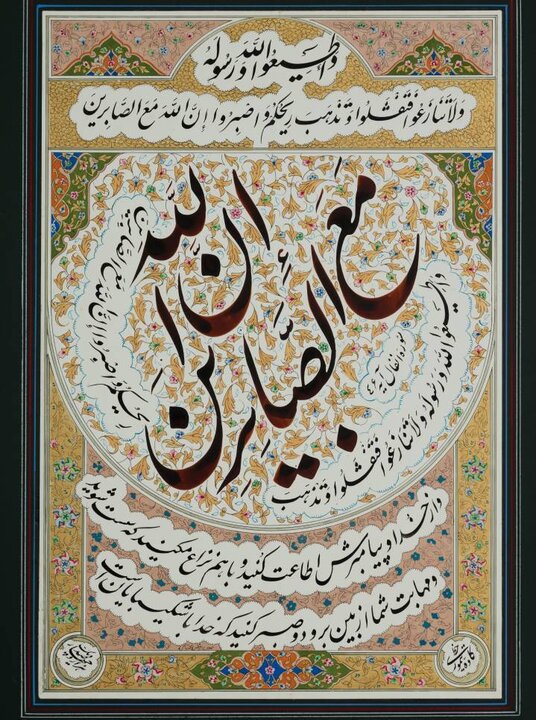 و اطیعوا الله و رسوله
ولا تنازعوا فتفشلوا و تذهب ریحکم و اصبروا إنّ الله مع الصّابرین
إنّ الله مَعَ الصّابرین
و اطیعوا الله و رسوله ولا تنازعوا فتفشلوا و تذهب
ریحکم و اصبروا إنّ الله مع الصّابرین
سوره انفال آیه ۴۶
و از خدا و پیامبرش اطاعت کنید و با هم نزاع مکنید که سست شوید
و مهابت شما از بین برود و صبر کنید که خدا با شکیبایان است